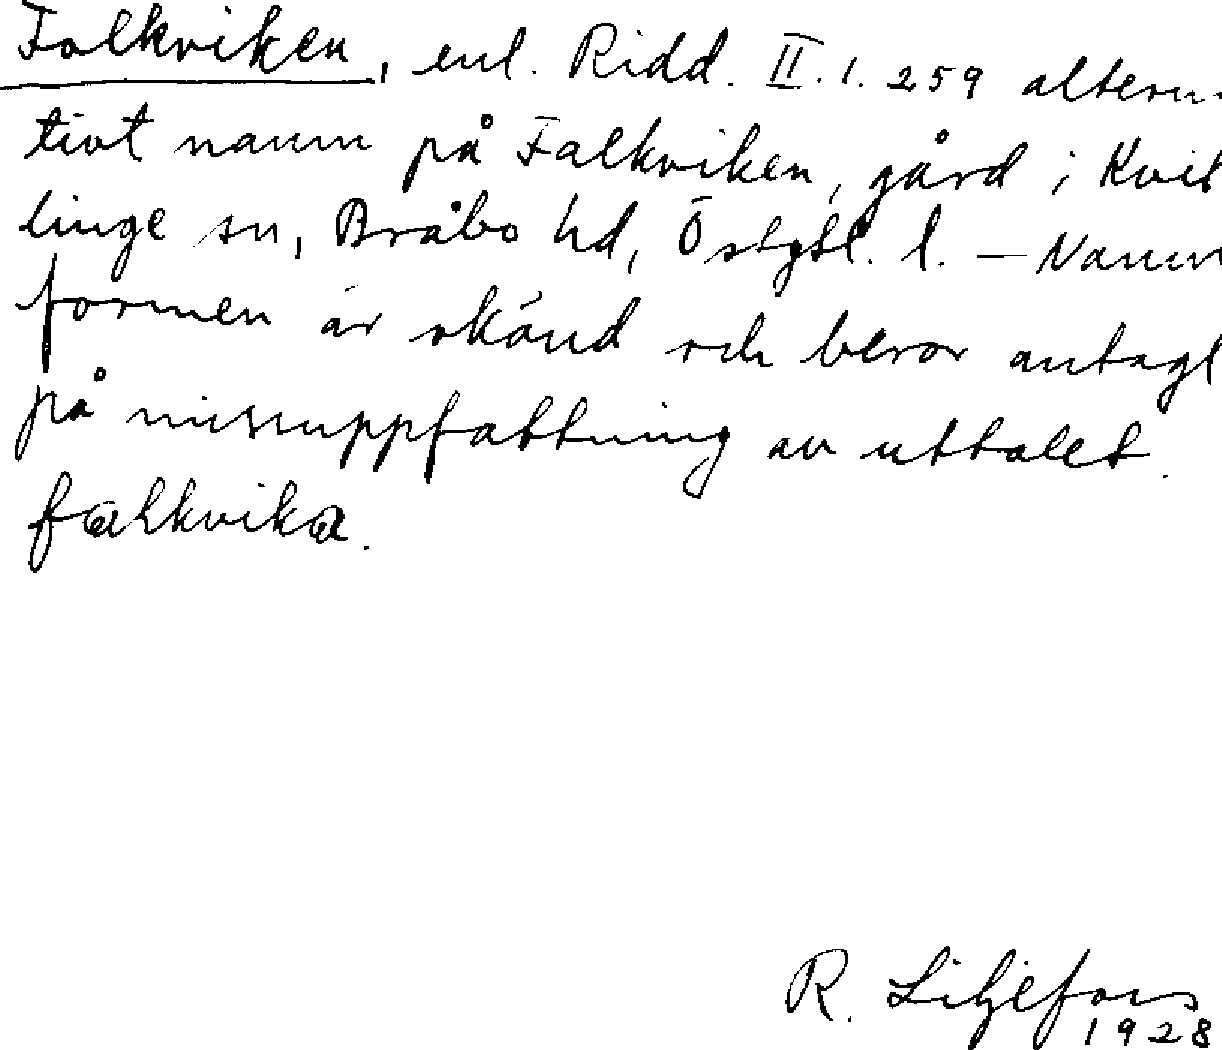 Folkviken, enl. Ridd. II. 1. 259 altern-
tivt namn på Falkviken, gård i Kvil
linge sn, Bråbo hd, Östgtl. l. — Namn
formen är okänd och beror antagl
på missuppfattning av uttalet.
falkvika.
R. Liljefors
1928